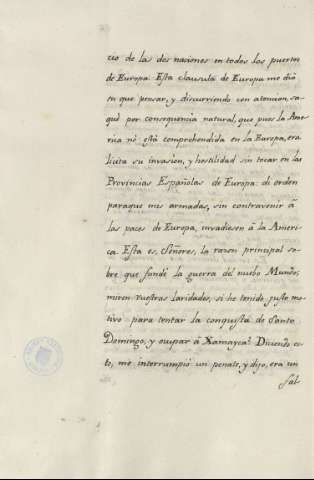 cio de las dos naciones en todos los puertos
de Europa. Esta clausula de Europa me dió
en que pensar, y discurriendo con atencion, sa-
qué por consequencia natural, que pues la Ame-
rica nó está comprehendida en la Europa, era
licita su invasion, y hostilidad sin tocar en las
Provincias Españolas de Europa: di orden
paraque mis armadas, sin contravenir â
las paces de Europa, invadiesen â la Ameri-
ca. Esta es, Señores, la razon principal so-
bre que fundé la guerra del nuebo Mundo;
miren vuestras claridades, si he tenido justo mo-
tivo para tentar la conquista de Santo
Domingo, y ocupar â Xamayca? Diciendo es-
to, me interrumpió un penate, y dijo, era un
Sal-